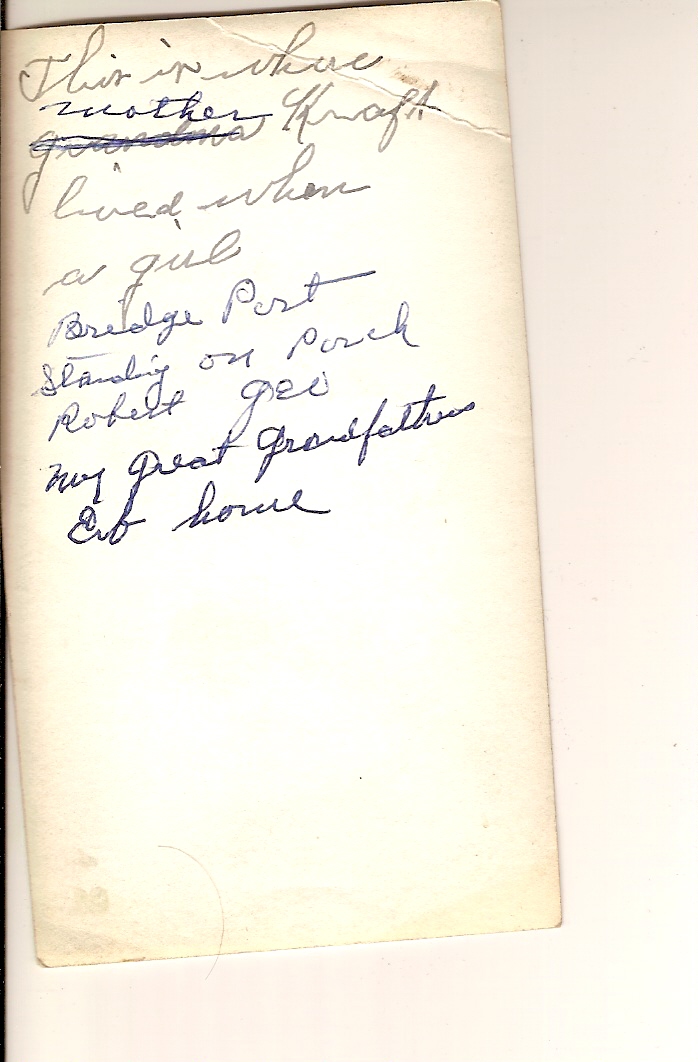 This is where
mother
grandma Kraft
lived when
a girl
Bridge Port
Standing on Porch
Robert Geo
my great grandfathers
Erb home